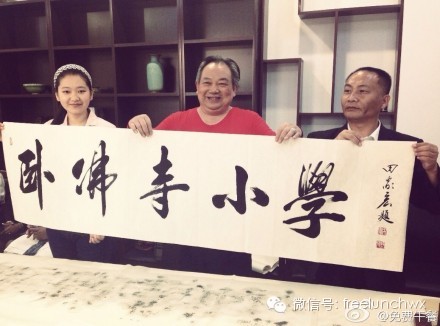 卧佛寺小學
田 題
微信号: freelunchwx
@免费午餐